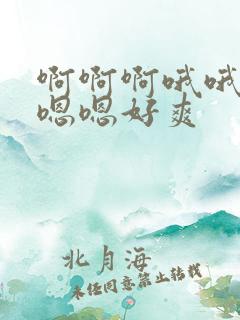 啊啊啊哦哦
嗯嗯好爽
北月海
未经同意禁止转载